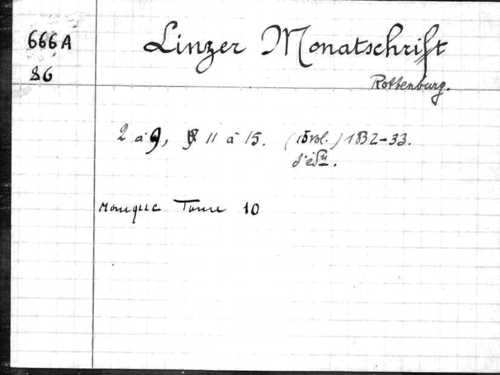 666A
86
Linzer Monatschrift
Rottenburg.
2 à 9, 11 à 15. (15 vol.) 1832-33.
Manque Tome 10